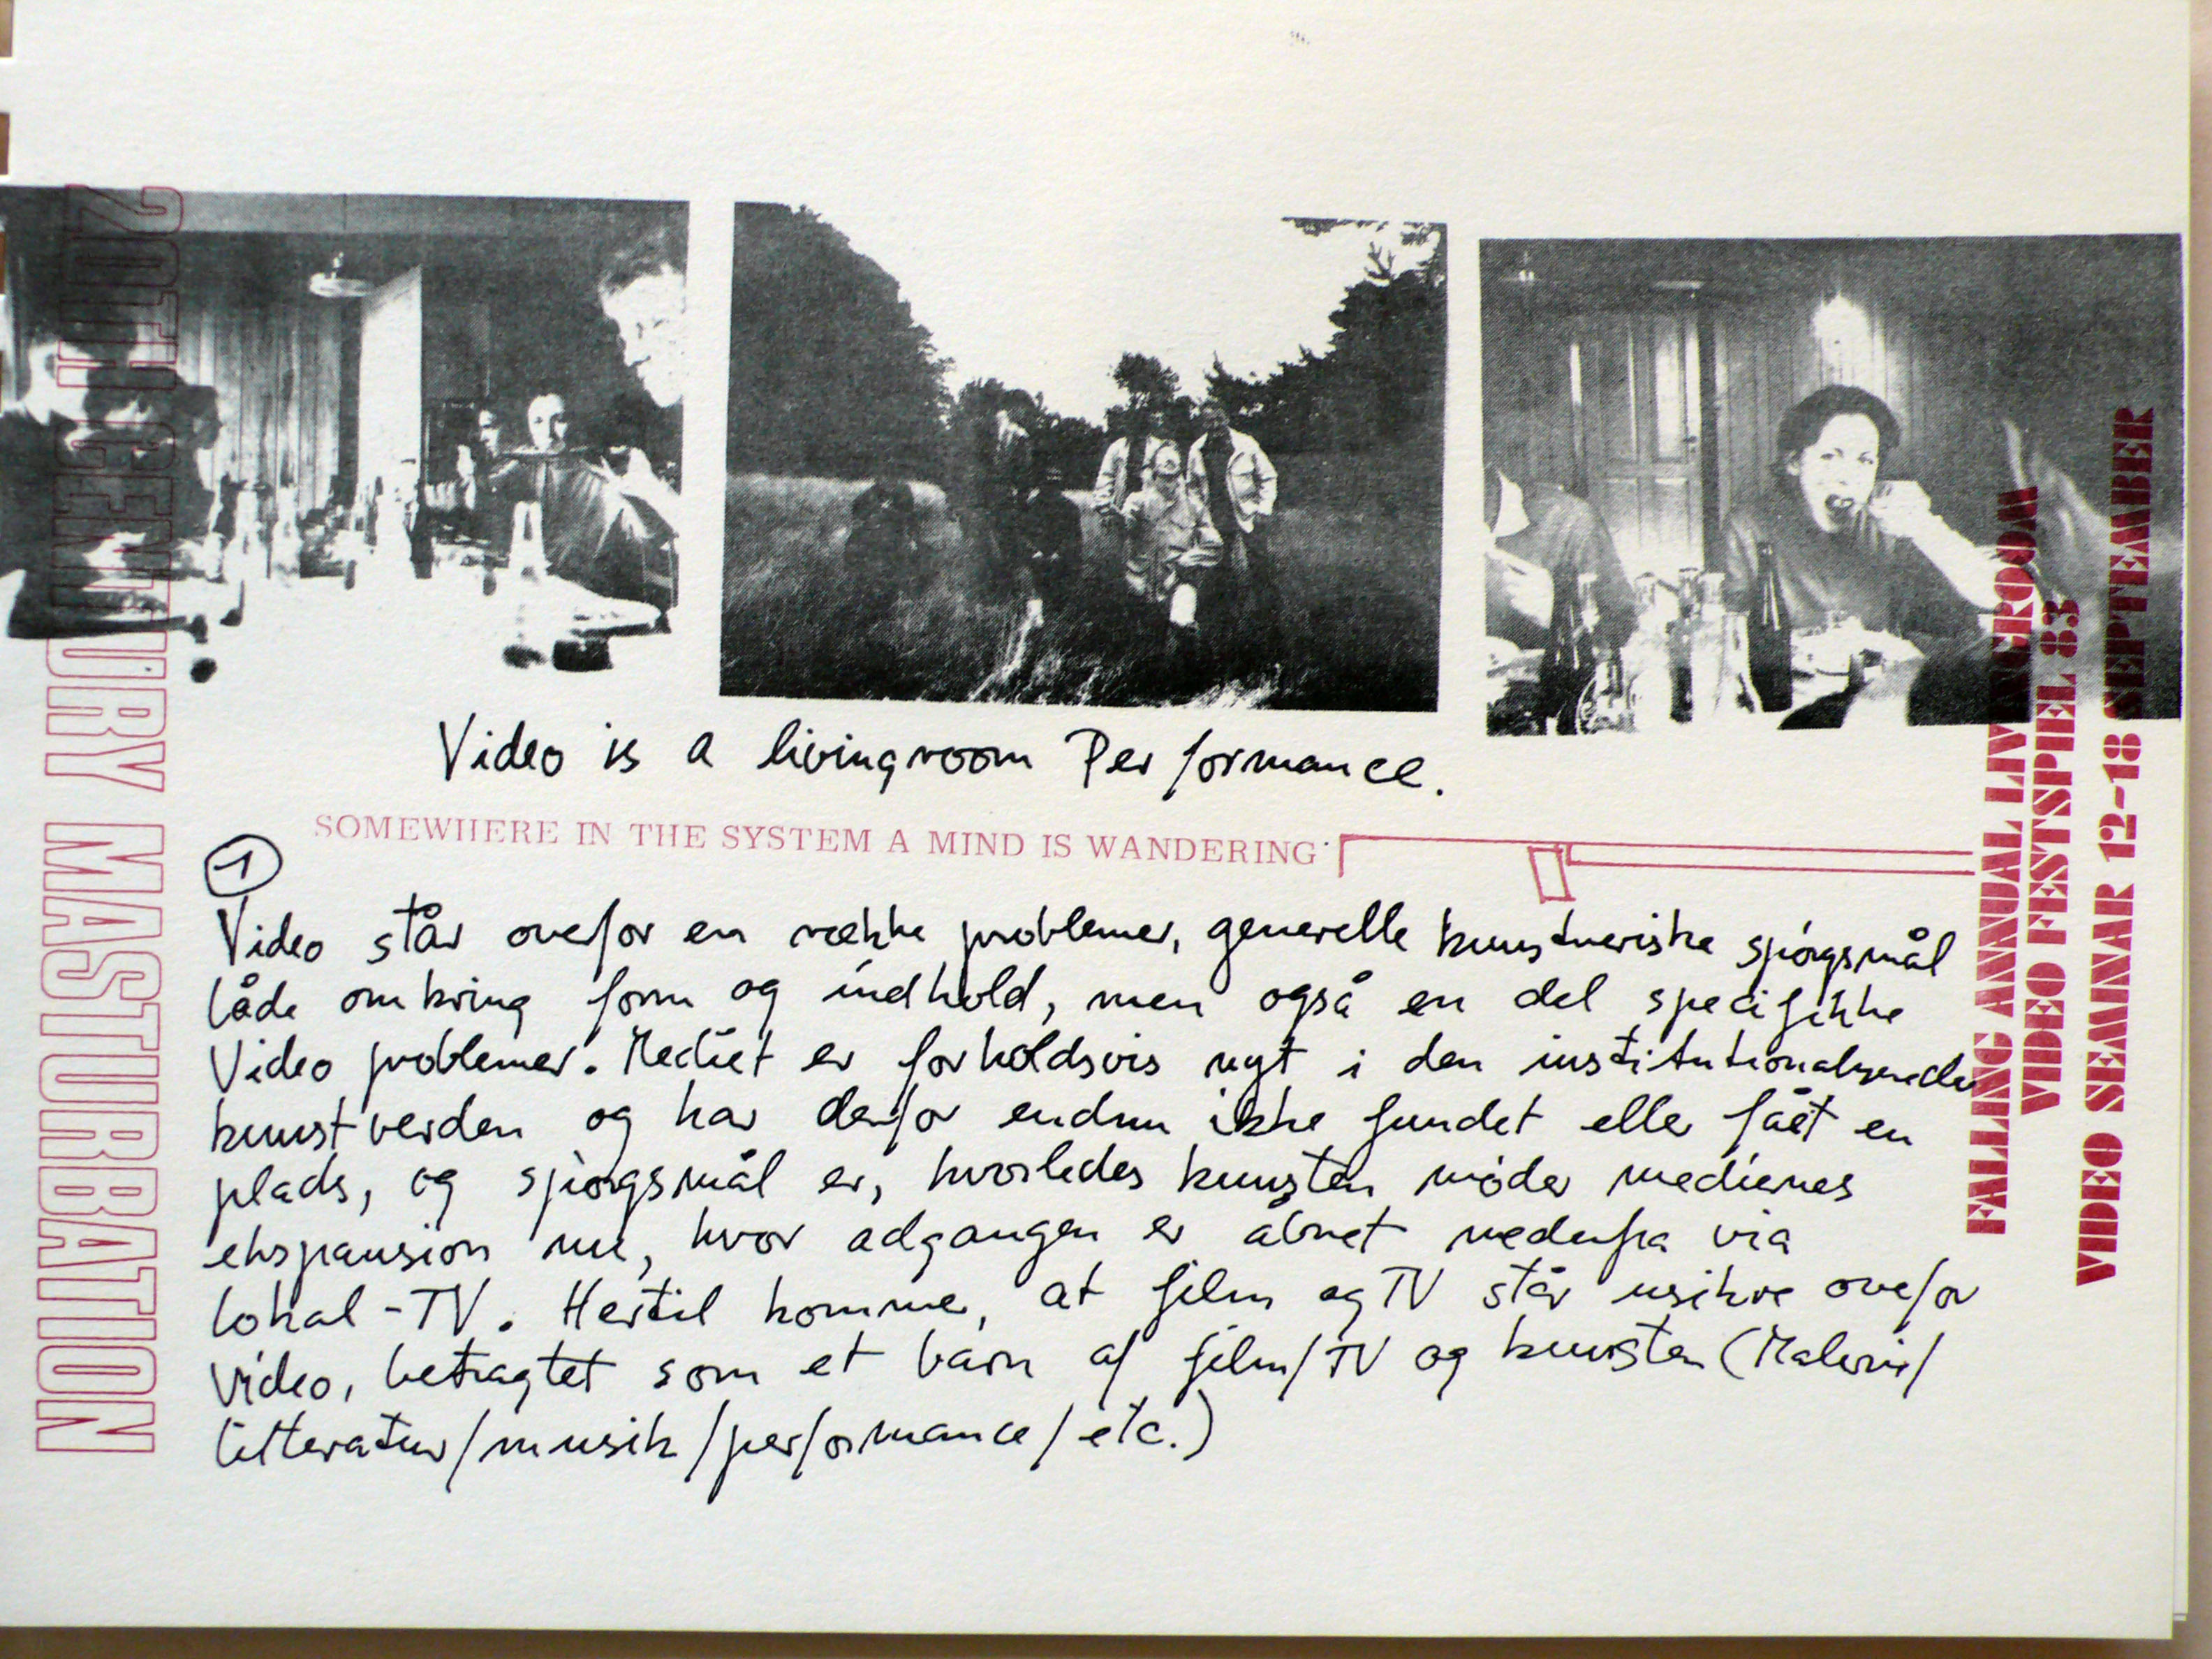 20TH CENTURY MASTURBATION
Video is a livingroom Performance.
SOMEWHERE IN THE SYSTEM A MIND IS WANDERING
1
Video står overfor en række problemer, generelle kunstneriske spörgsmål
både omkring form og indhold, men også en del specifikke
Video problemer. Mediet er forholdsvis nyt i den institutionaliserede
kunstverden og har derfor endnu ikke fundet eller fået en
plads, og spörgsmål er, hvorledes kunsten möder mediernes
ekspansion nu, hvor adgangen er åbnet nedenfra via
lokal-TV. Hertil kommer, at film og TV står usikre overfor
Video, betragtet som et barn af film/TV og kunsten (Maleri/
litteratur/musik/performance/etc.)
FALLING ANNUAL LIVINGROOM
VIDEO FESTSPIEL 83
VIDEO SEMINAR 12-18 SEPTEMBER